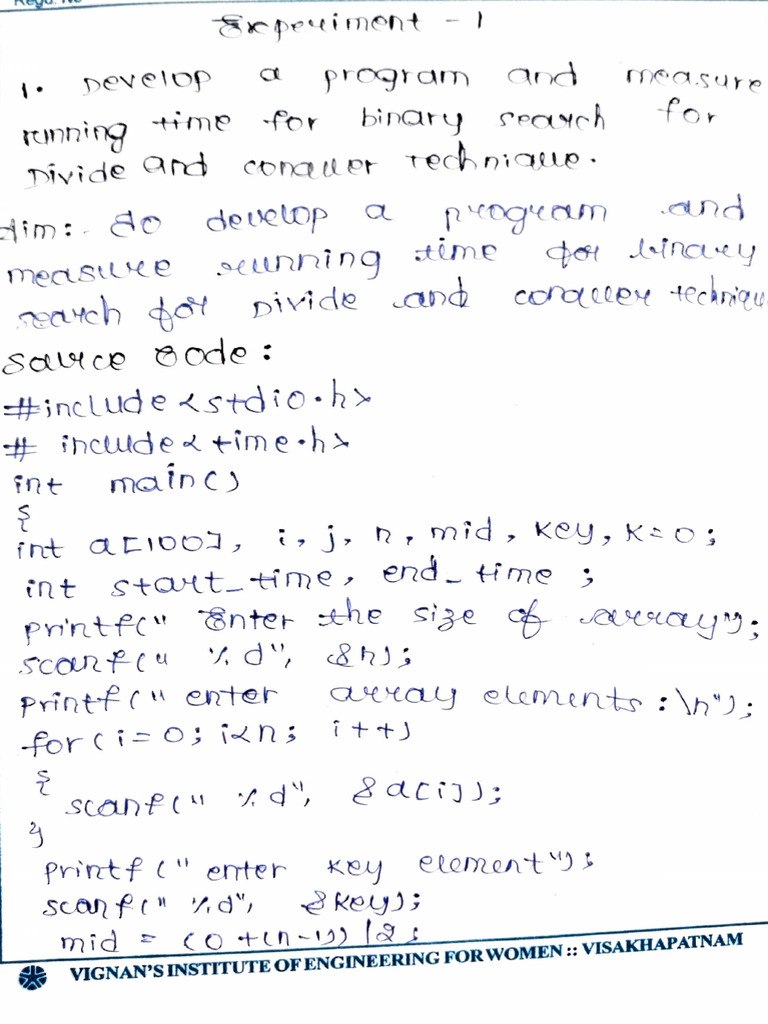 Regd. No
Experiment - 1
1. Develop a program and measure
running time for binary search for
Divide and conquer Technique.
Aim:- To develop a program and
measure running time for binary
search for Divide and conquer technique
Source Code :
#include<stdio.h>
# include<time.h>
int main()
{
int a[100], i, j, n, mid, key, k=0;
int start_time, end_time ;
printf(" Enter the size of array");
scanf(" %d", &n);
printf(" enter array elements :\n");
for(i=0; i<n; i++)
{
scanf(" %d", &a[i]);
}
printf (" enter key element");
scanf(" %d", &key);
mid = (0+(n-1))/2;
VIGNAN'S INSTITUTE OF ENGINEERING FOR WOMEN :: VISAKHAPATNAM